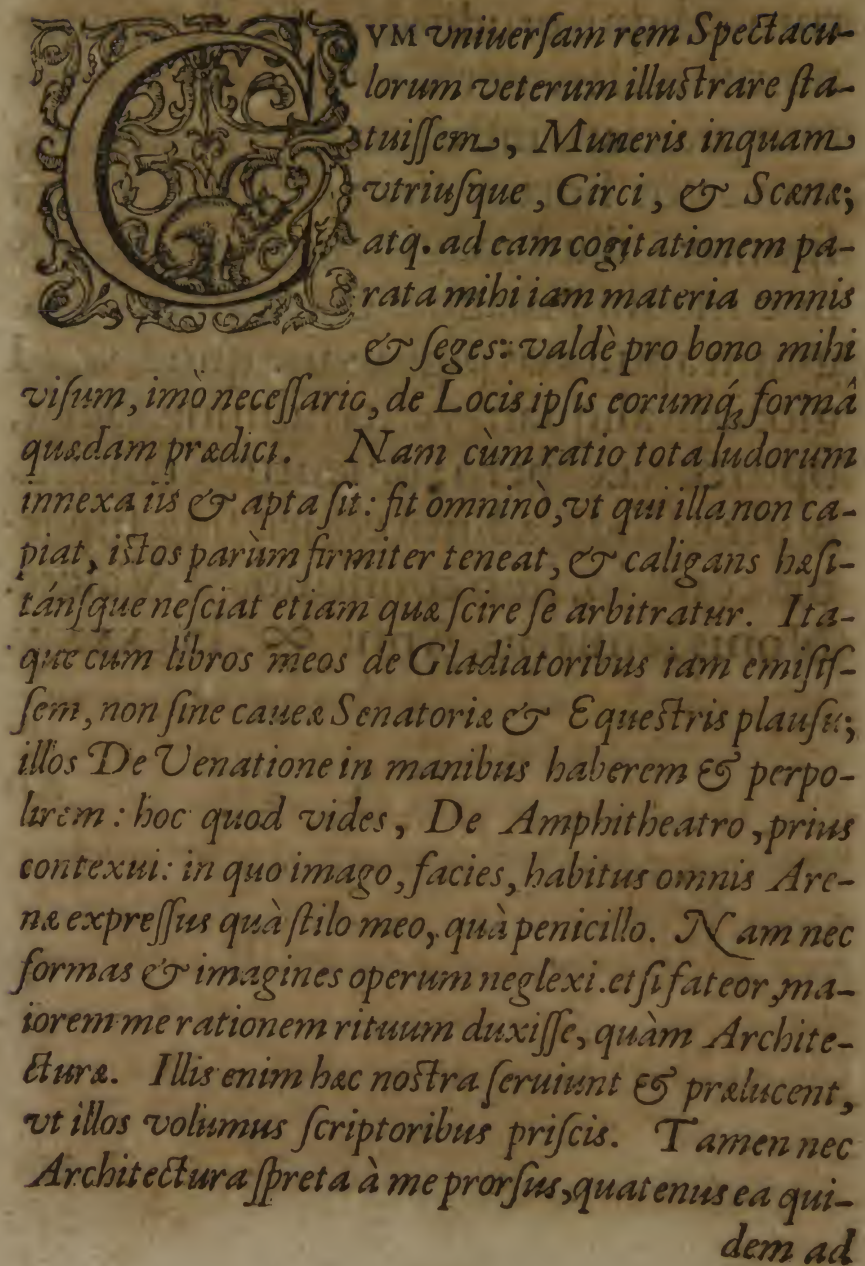 CVM vniuerſam rem Spectacu-
lorum veterum illuſtrare ſta-
tuiſſem, Muneris inquam
vtriuſque, Circi, & Scænæ;
atq. ad eam cogitationem pa-
rata mihi iam materia omnis
& ſeges: valdè pro bono mihi
viſum, imò neceſſario, de Locis ipſis eorumq́; formâ
quædam prædici. Nam cùm ratio tota ludorum
innexa iis & apta ſit: fit omninò, vt qui illa non ca-
piat, iſtos parùm firmiter teneat, & caligans hæſi-
tánſque neſciat etiam quæ ſcire ſe arbitratur. Ita-
que cùm libros meos de Gladiatoribus iam emiſiſ-
ſem, non ſine caueæ Senatoriæ & Equeſtris plauſu;
illos De Venatione in manibus haberem & perpo-
lirem: hoc quod vides, De Amphitheatro, prius
contexui: in quo imago, facies, habitus omnis Are-
næ expreſſus quà ſtilo meo, quà penicillo. Nam nec
formas & imagines operum neglexi. etſi fateor, ma-
iorem me rationem rituum duxiſſe, quàm Archite-
cturæ. Illis enim hæc noſtra ſeruiunt & prælucent,
vt illos volumus ſcriptoribus priſcis. Tamen nec
Architectura ſpreta à me prorſus, quatenus ea qui-
dem ad